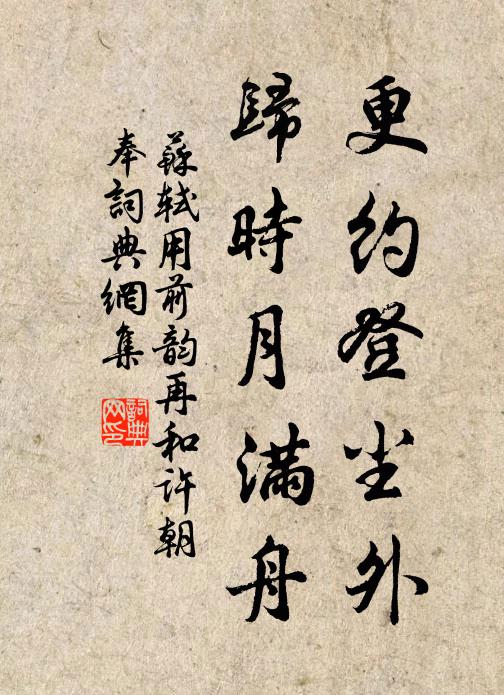 更约登尘外
歸時月满舟
蘇轼用前韵再和许朝
奉詞典網集
詞典网印